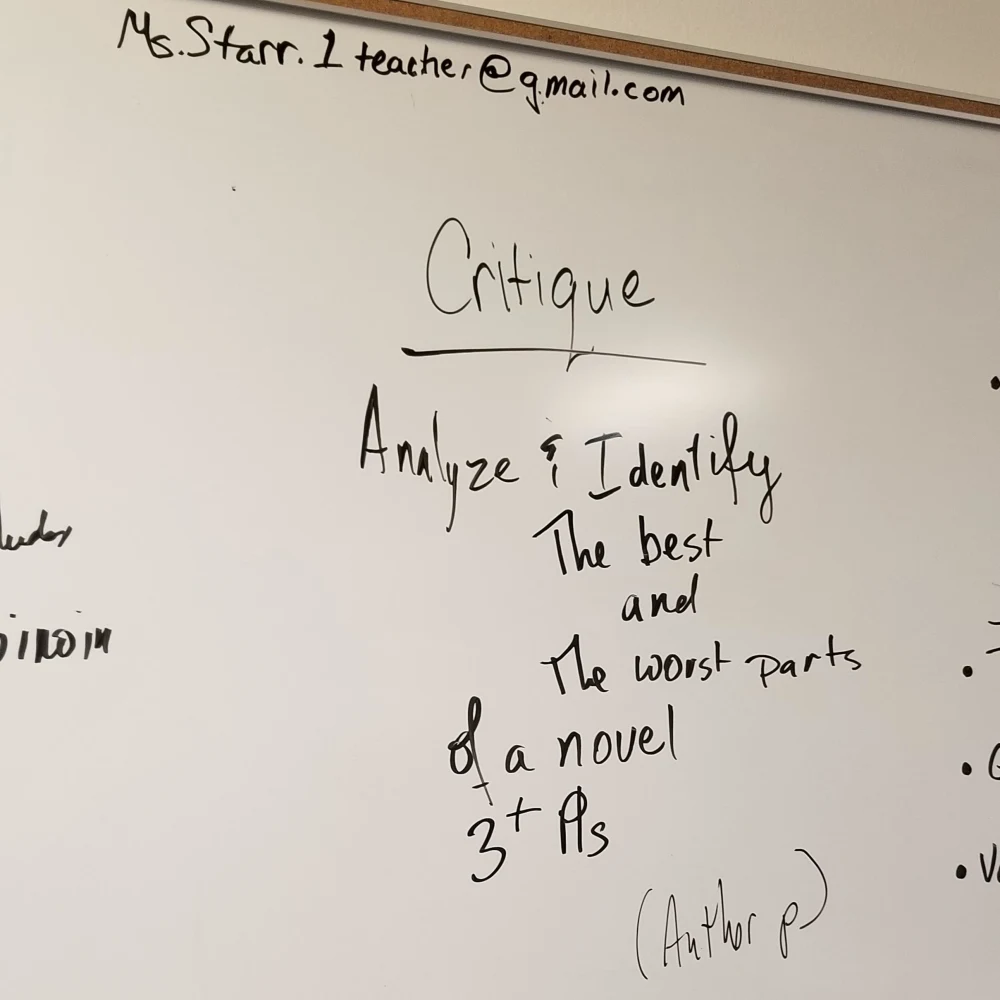 Ms.Starr.1teacher@gmail.com
Critique
Analyze & Identify
The best
and
The worst parts
of a novel
3+ Ps
(Author p)